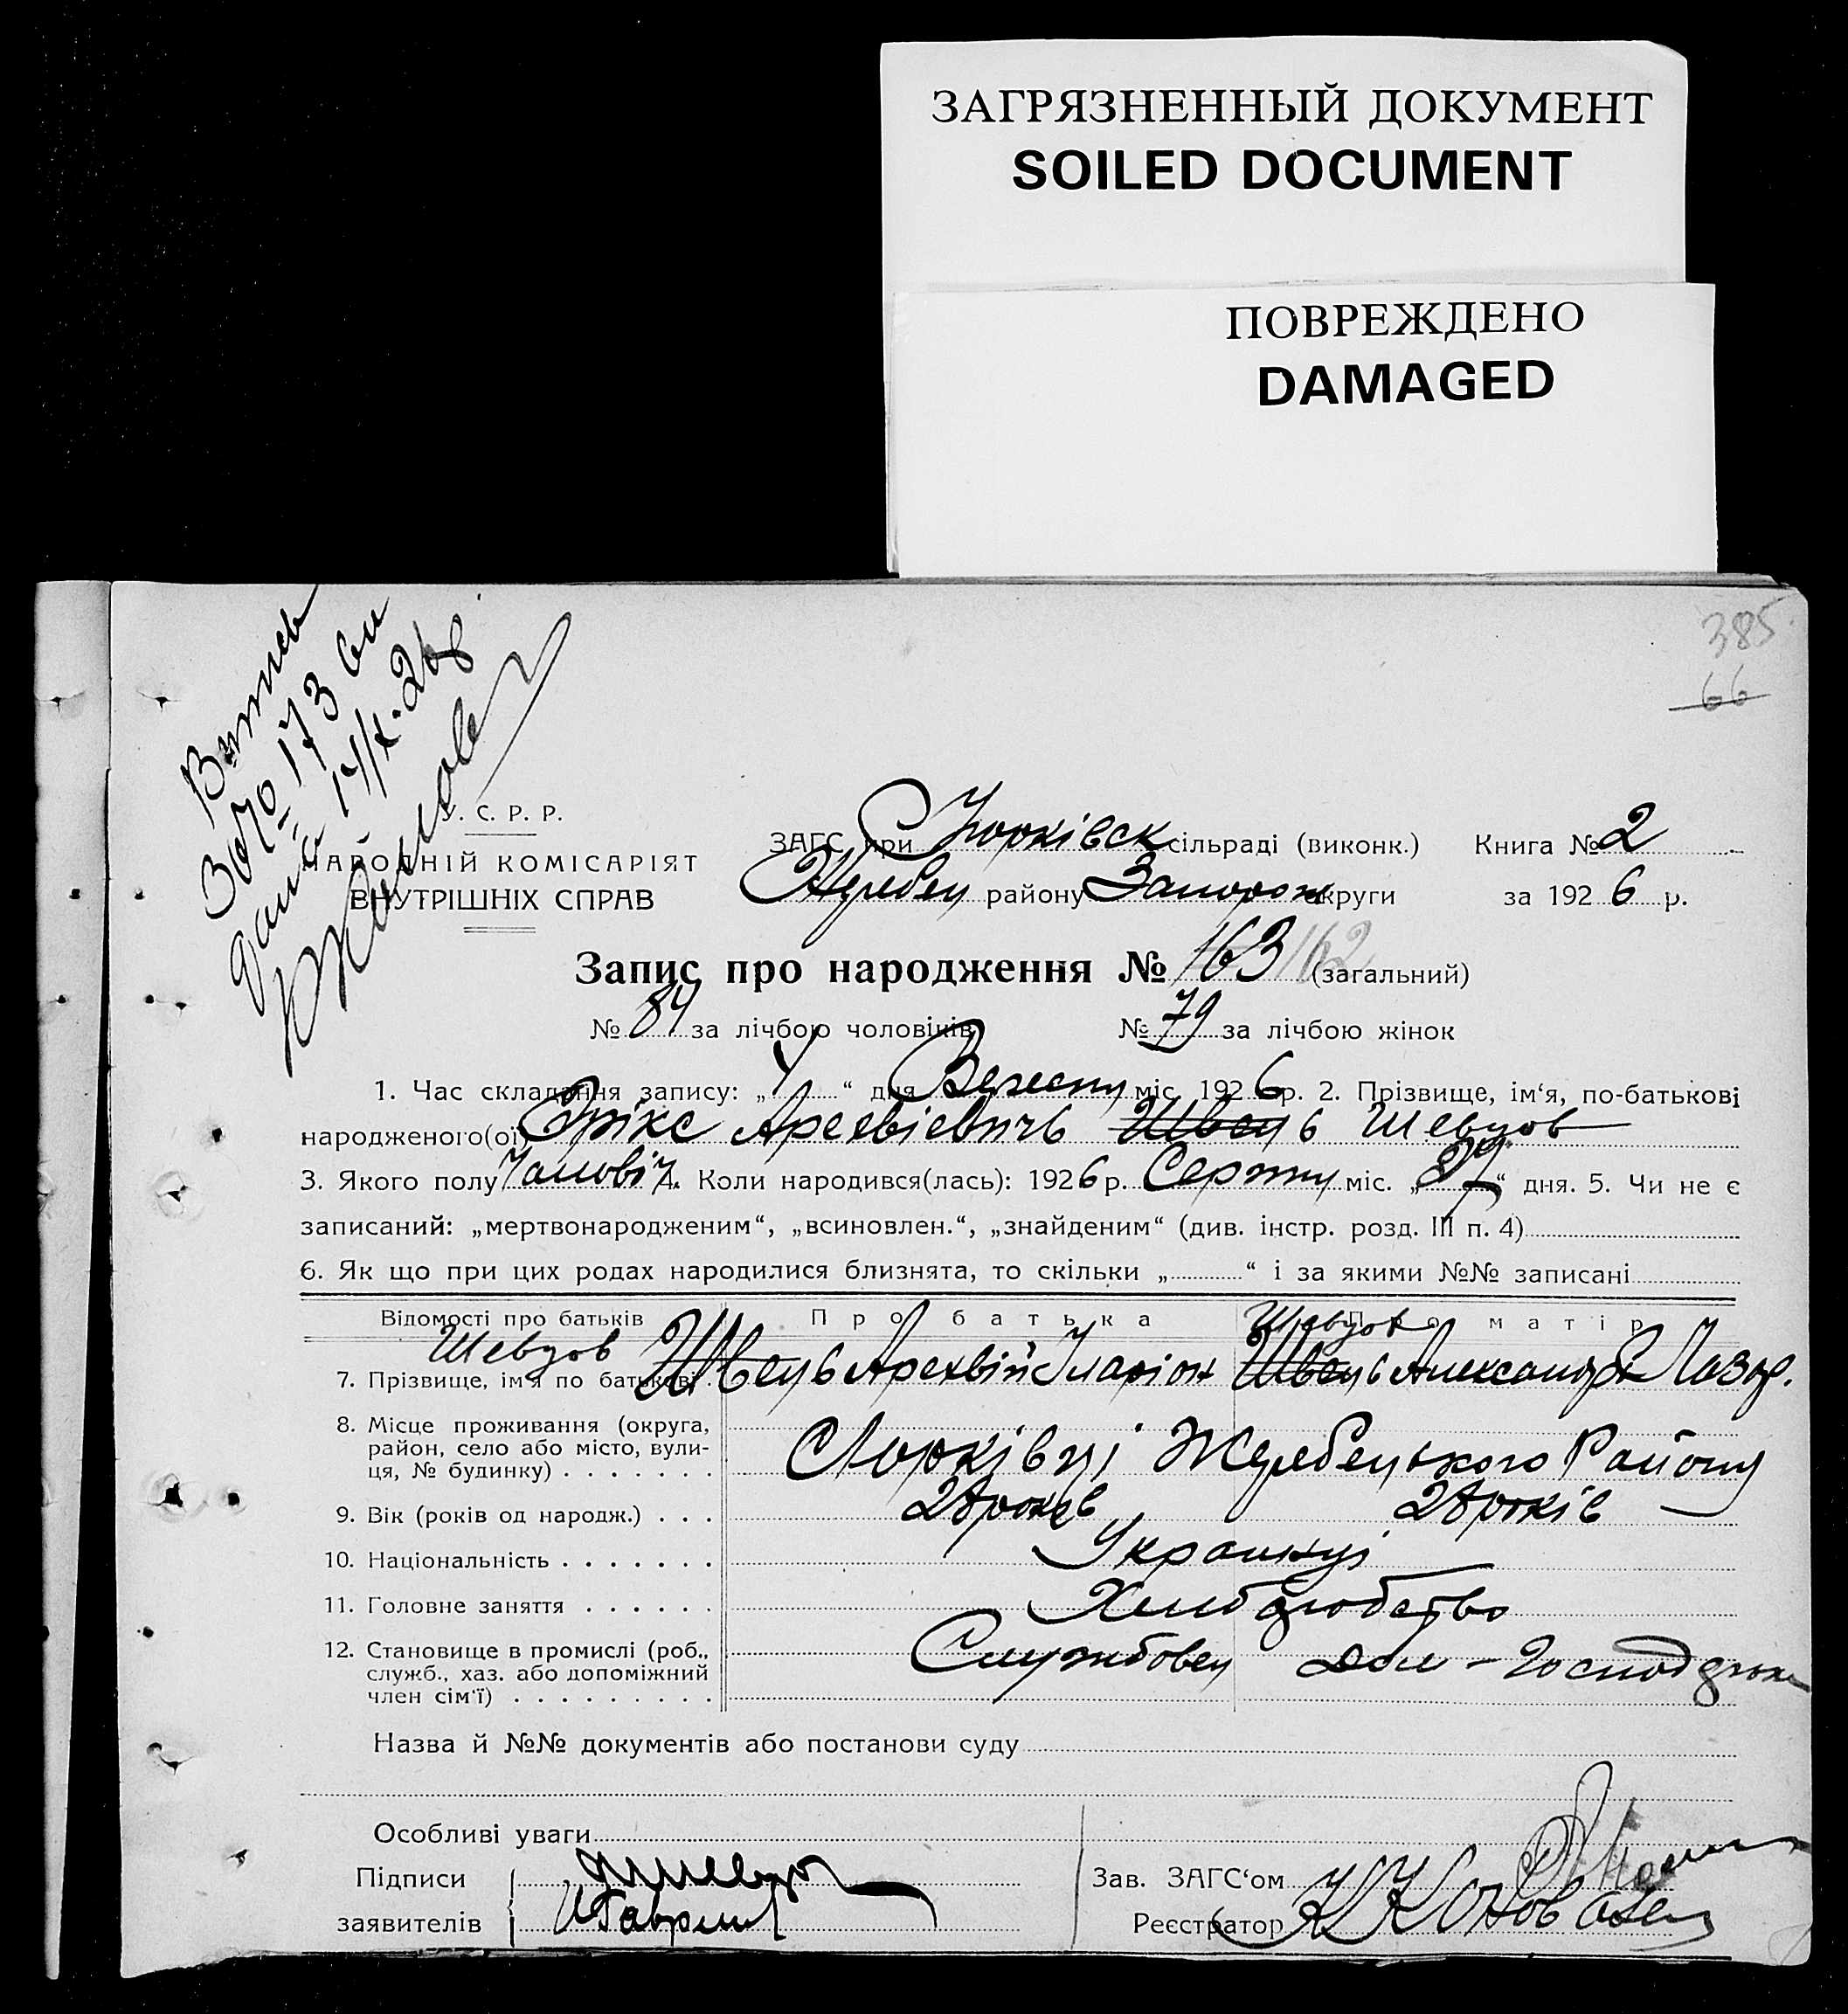 ЗАГРЯЗНЕННЫЙ ДОКУМЕНТ
SOILED DOCUMENT
ПОВРЕЖДЕНО
DAMAGED
385
66
У. С. Р. Р.
НАРОДНІЙ КОМІСАРІЯТ
ВНУТРІШНІХ СПРАВ
ЗАГС при сільраді (виконк.) Книга № 2
Жеребец району Запорож округи за 1926 р.
Запис про народження № 163 162 (загальний)
№ 84 за лічбою чоловіків № 79 за лічбою жінок
1. Час складання запису: „4“ дня Вересня міс. 1926 р. 2. Прізвище, ім‘я, по-батькові
народженого(ої) Шевцов
3. Якого полу Чоловіч 4. Коли народився(лась): 1926 р. Серпня міс. „ “ дня. 5. Чи не є
записаний: „мертвонародженим“, „всиновлен.“, „знайденим“ (див. інстр. розд. III п. 4)
6. Як що при цих родах народилися близнята, то скільки „ “ і за якими №№ записані
Відомості про батьків Про батька Про матір
Шевцов Шевцов
7. Прізвище, ім‘я по батькові Швець Іларіон Швець Александра Лазар.
8. Місце проживання (округа,
район, село або місто, вули-
ця, № будинку) Жеребецького Району
9. Вік (років од народж.) 28 років 28 років
10. Національність Українці
11. Головне заняття Хліборобство
12. Становище в промислі (роб.,
служб., хаз. або допоміжний
член сім‘ї) Службовец Дом-Господарка
Назва й №№ документів або постанови суду
Особливі уваги
Підписи
заявителів
Зав. ЗАГС‘ом
Реєстратор